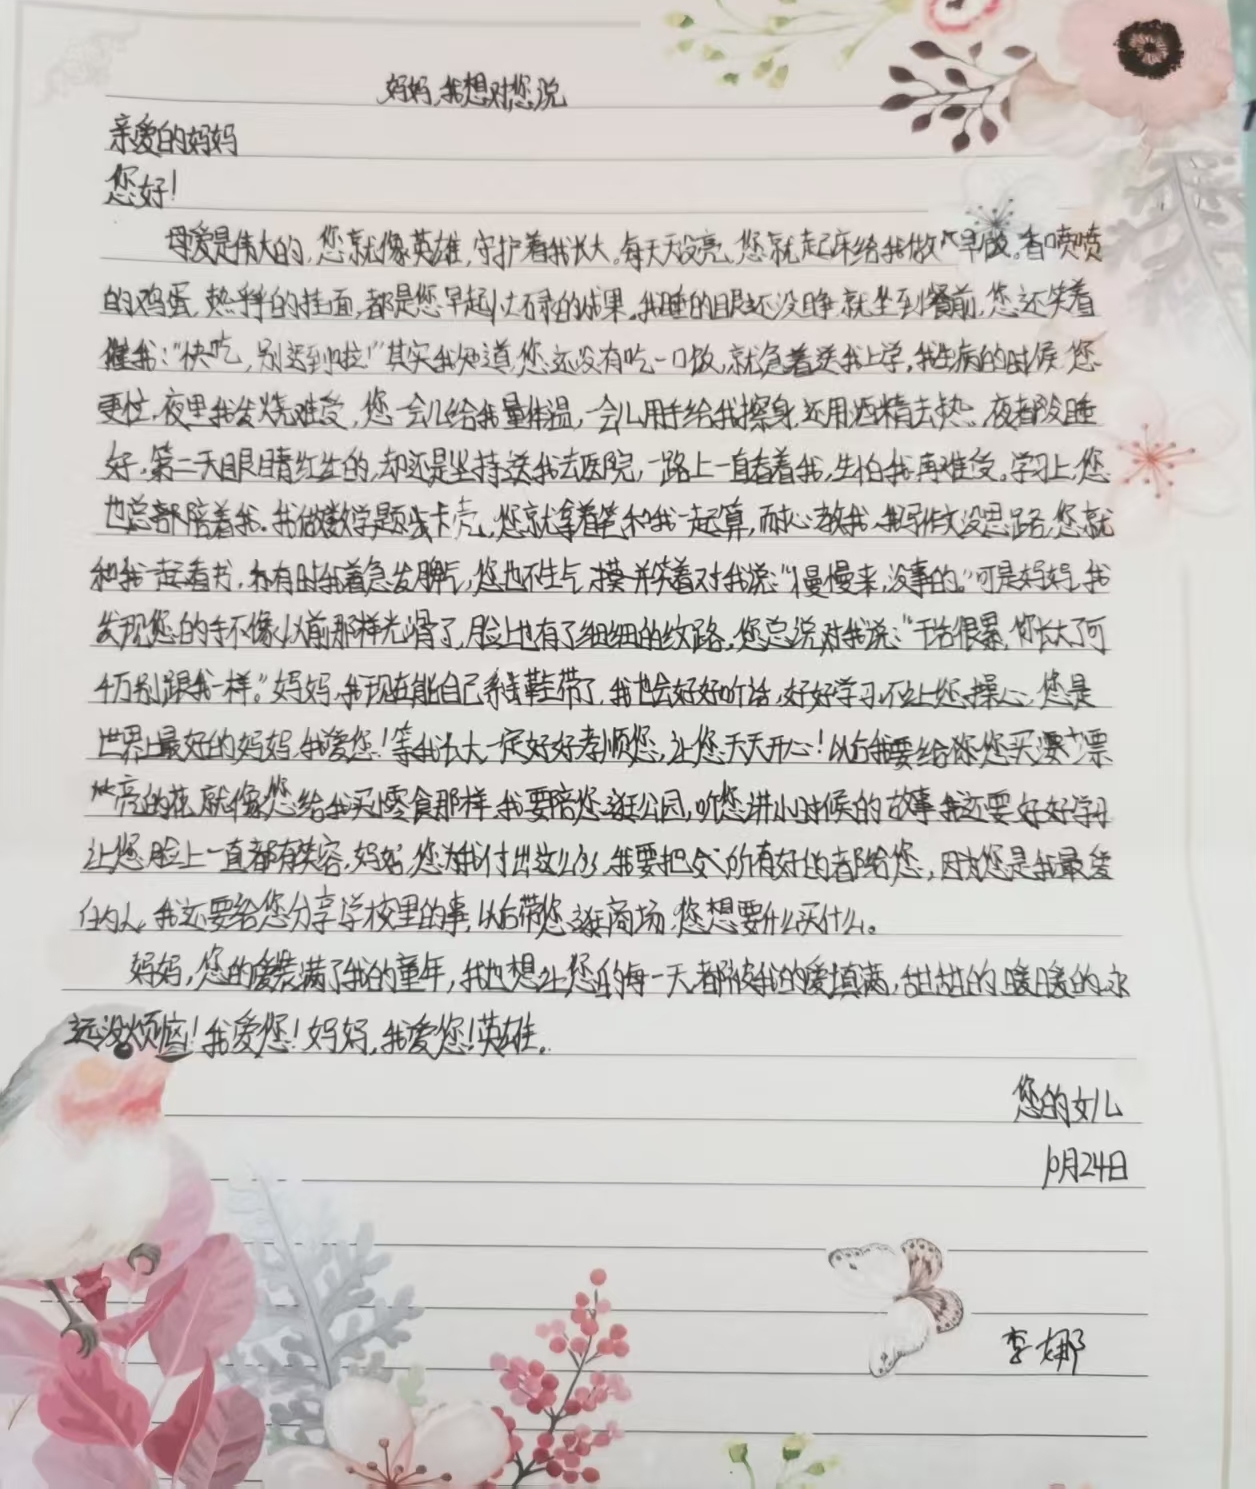 妈妈,我想对您说
亲爱的妈妈
您好!
母爱是伟大的,您就像英雄,守护着我长大。每天天没亮,您就起床给我做早饭。香喷喷
的鸡蛋,热乎的挂面,都是您早起忙碌的成果。我睡的眼还没睁,就坐到餐前,您还笑着
催我:“快吃,别迟到啦!”其实我知道,您还没有吃一口饭,就急着送我上学,我生病的时候,您
更忙,夜里我发烧难受,您一会儿给我量体温,一会儿用手给我擦身,还用酒精去热。一夜都没睡
好,第二天眼睛红红的,却还是坚持送我去医院,一路上一直看着我,生怕我再难受。学习上,您
也总陪着我。我做数学题卡壳,您就拿着笔和我一起算,耐心教我,我写作文没思路,您就
和我一起看书,有时我着急发脾气,您也不生气,摸笑着对我说:“慢慢来,没事的。”可是妈妈,我
发现您的手不像以前那样光滑了,脸上也有了细细的纹路,您总说对我说:“干活很累,你长大了可
千万别跟我一样。”妈妈,我现在能自己系鞋带了,我也会好好听话,好好学习,不让您操心,您是
世界上最好的妈妈,我爱您!等我长大一定好好孝顺您,让您天天开心!以后我要给你您买漂漂
亮的花,就像您给我买零食那样,我要陪您逛公园,听您讲小时候的故事,我还要好好学习
让您脸上一直都有笑容,妈妈,您为我付出这么多,我要把所有好的都给您,因为您是我最爱
的人,我还要给您分享学校里的事,以后带您逛商场,您想要什么买什么。
妈妈,您的爱装满了我的童年,我也想让您的每一天,都被我的爱填满,甜甜的,暖暖的,永
远没烦恼!我爱您!妈妈,我爱您!英雄。
您的女儿
10月24日
李娜